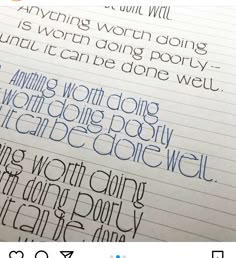 it done well
Anything worth doing
is worth doing poorly --
until it can be done well.
Anything worth doing
is worth doing poorly
it can be done well.
ing worth doing
th doing poorly
it can be done